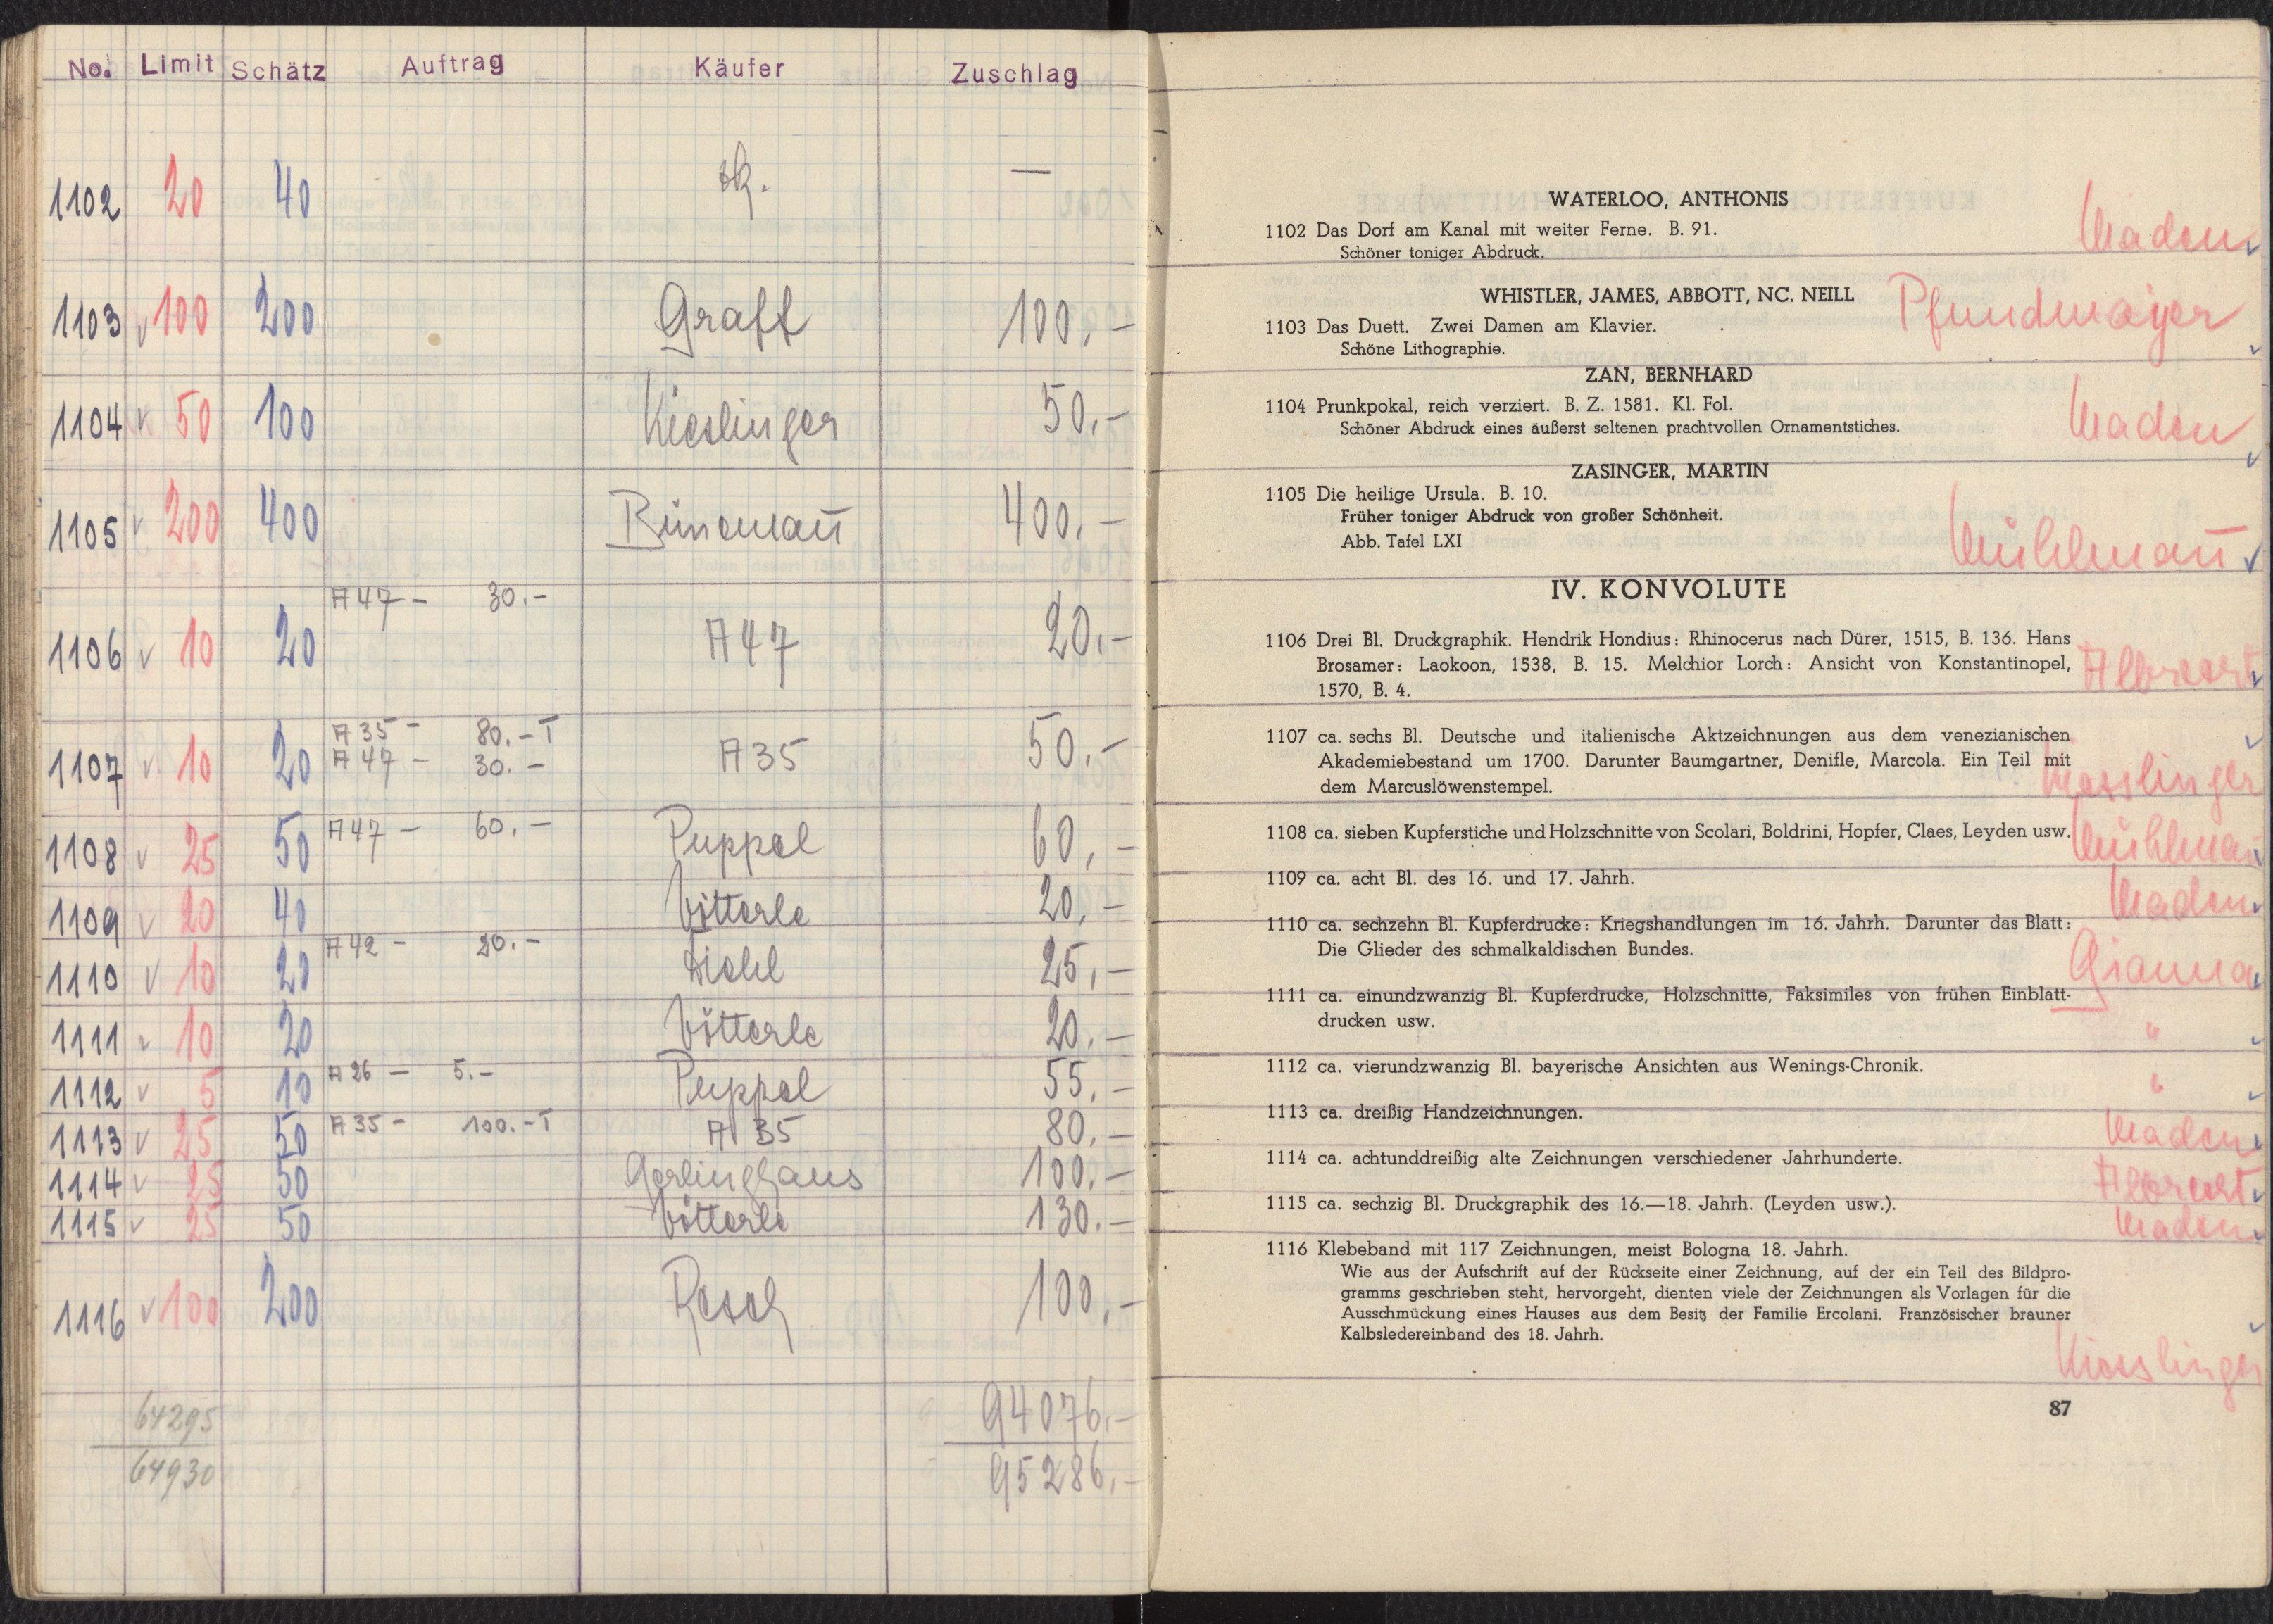 No. Limit Schätz Auftrag Käufer Zuschlag
1102 20 40 —
1103 v 100 200 Graff 100.-
1104 v 50 100 Kieslinger 50.-
1105 v 200 400 400.-
A 47 - 30.-
1106 v 10 20 A 47 20.-
A 35 - 80.- T
1107 v 10 20 A 47 - 30.- A 35 50.-
1108 v 25 50 A 47 - 60.- Puppel 60.-
1109 v 20 40 Vötterle 20.-
1110 v 10 20 A 42 - 20.- Diehl 25.-
1111 v 10 20 Vötterle 20.-
1112 v 5 10 A 26 - 5.- Puppel 55.-
1113 v 25 50 A 35 - 100.- T A 35 80.-
1114 v 25 50 Gerlinghaus 100.-
1115 v 25 50 Vötterle 130.-
1116 v 100 200 Resch 100.-
64295 94076.-
64930 95286.-
WATERLOO, ANTHONIS
1102 Das Dorf am Kanal mit weiter Ferne. B. 91.
Schöner toniger Abdruck.
Maden
WHISTLER, JAMES, ABBOTT, NC. NEILL
Pfundmayer
1103 Das Duett. Zwei Damen am Klavier.
Schöne Lithographie.
ZAN, BERNHARD
1104 Prunkpokal, reich verziert. B. Z. 1581. Kl. Fol.
Schöner Abdruck eines äußerst seltenen prachtvollen Ornamentstiches.
Maden
ZASINGER, MARTIN
1105 Die heilige Ursula. B. 10.
Früher toniger Abdruck von großer Schönheit.
Abb. Tafel LXI
Mühlmañ
IV. KONVOLUTE
1106 Drei Bl. Druckgraphik. Hendrik Hondius: Rhinocerus nach Dürer, 1515, B. 136. Hans
Brosamer: Laokoon, 1538, B. 15. Melchior Lorch: Ansicht von Konstantinopel,
1570, B. 4.
Albrecht
1107 ca. sechs Bl. Deutsche und italienische Aktzeichnungen aus dem venezianischen
Akademiebestand um 1700. Darunter Baumgartner, Denifle, Marcola. Ein Teil mit
dem Marcuslöwenstempel.
Kiesslinger
1108 ca. sieben Kupferstiche und Holzschnitte von Scolari, Boldrini, Hopfer, Claes, Leyden usw.
Mühlmañ
1109 ca. acht Bl. des 16. und 17. Jahrh.
Maden
1110 ca. sechzehn Bl. Kupferdrucke: Kriegshandlungen im 16. Jahrh. Darunter das Blatt:
Die Glieder des schmalkaldischen Bundes.
Gianna
1111 ca. einundzwanzig Bl. Kupferdrucke, Holzschnitte, Faksimiles von frühen Einblatt-
drucken usw.
"
1112 ca. vierundzwanzig Bl. bayerische Ansichten aus Wenings-Chronik.
"
1113 ca. dreißig Handzeichnungen.
Maden
1114 ca. achtunddreißig alte Zeichnungen verschiedener Jahrhunderte.
Albrecht
1115 ca. sechzig Bl. Druckgraphik des 16.—18. Jahrh. (Leyden usw.).
Maden
1116 Klebeband mit 117 Zeichnungen, meist Bologna 18. Jahrh.
Wie aus der Aufschrift auf der Rückseite einer Zeichnung, auf der ein Teil des Bildpro-
gramms geschrieben steht, hervorgeht, dienten viele der Zeichnungen als Vorlagen für die
Ausschmückung eines Hauses aus dem Besitz der Familie Ercolani. Französischer brauner
Kalbsledereinband des 18. Jahrh.
Kiesslinger
87